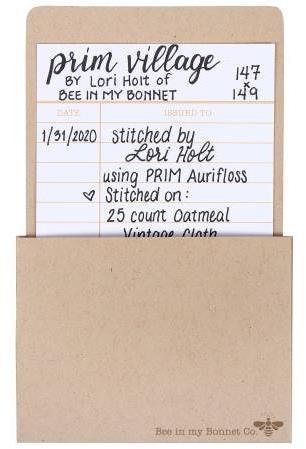 prim village
BY Lori Holt of
BEE IN MY BONNET
147
x
149
DATE
ISSUED TO
1/31/2020
stitched by
Lori Holt
using PRIM Aurifloss
♡ Stitched on:
25 count Oatmeal
Vintage Cloth
Bee in my Bonnet Co.